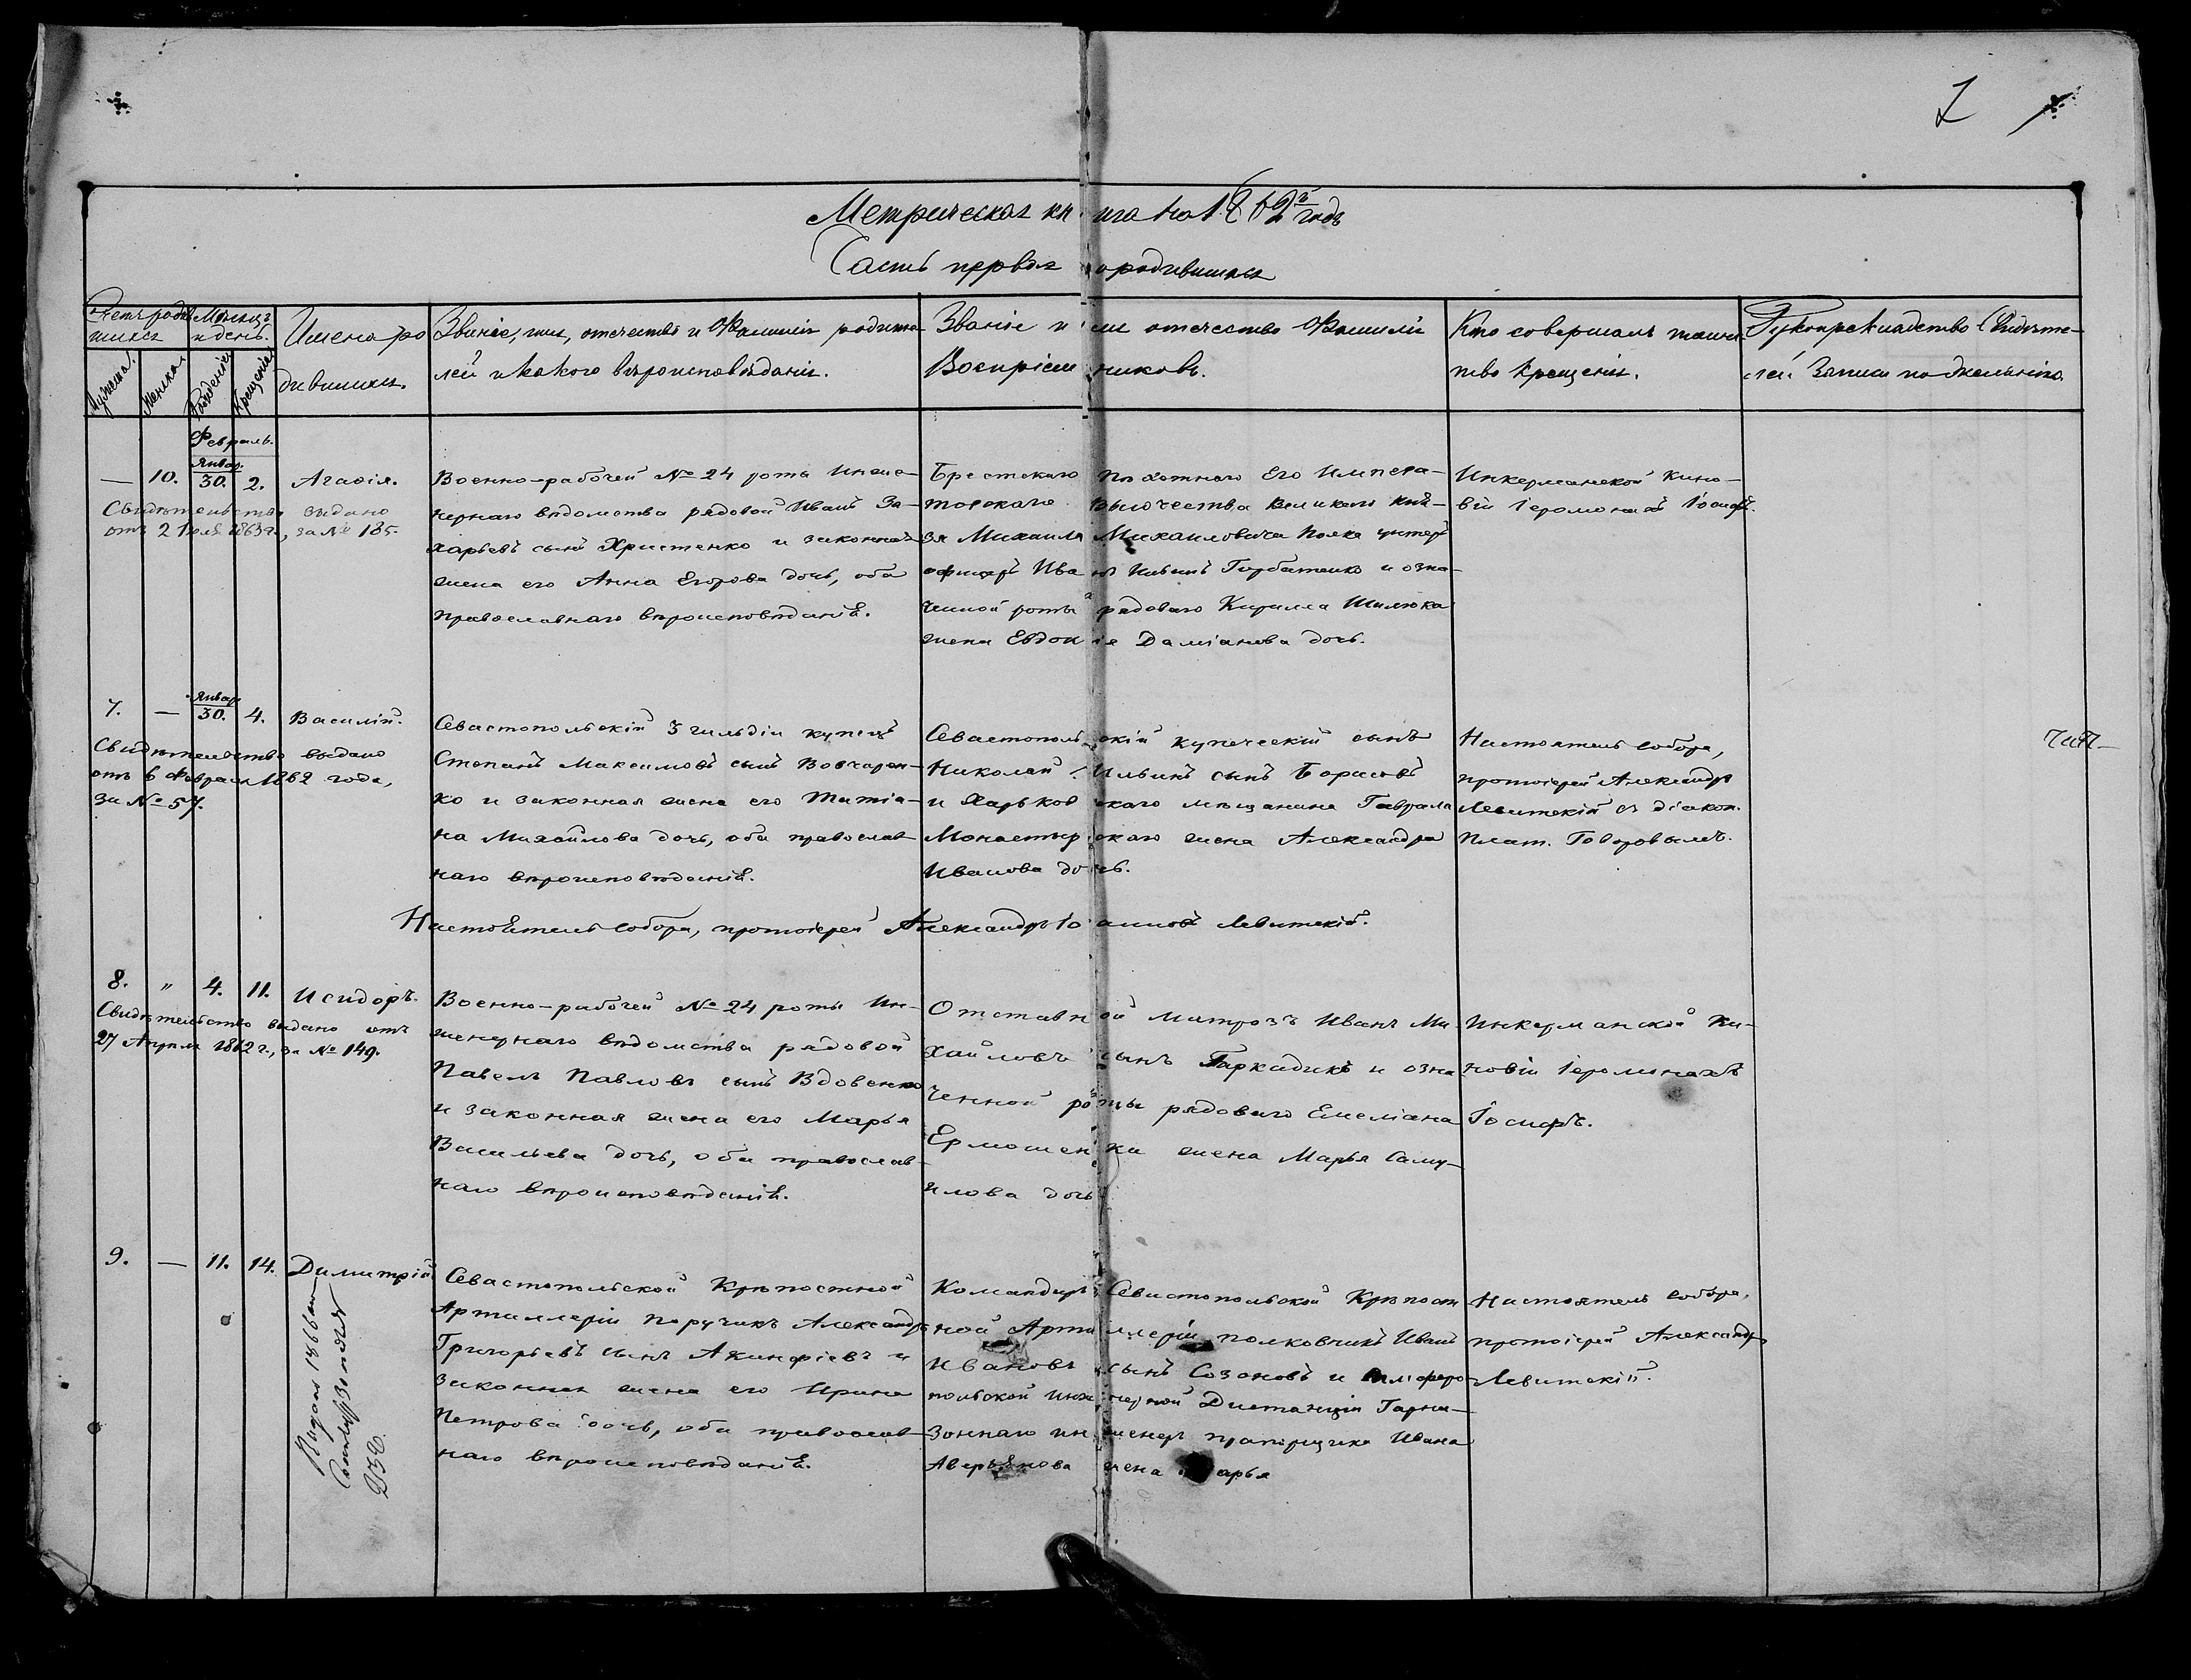 7
Метрическая книга на 1862й годъ
Часть первая о родившихся
Счетъ родив
шихся
Мужеска.
Женска.
Мѣсяцъ
и день.
Рожденія.
Крещенія.
Имена ро
дившихся.
Званіе, имя, отечество и Фамилія родите
лей и какого вѣроисповѣданія.
Званіе и имя отечество Фамилія
Воспріемниковъ.
Кто совершалъ таин
ство Крещенія.
Рукоприкладство Свидѣте-
лей Записи по желанію.
Февраль.
— 10. Январ. 30. 2. Агафія.
Свидѣтельство выдано
отъ 2 Іюля 1863 г., за № 185.
Военно-рабочей № 24 роты Инже-
нернаго вѣдомства рядовой Иванъ За-
харьевъ сынъ Христенко и законная
жена его Анна Егорова дочь, оба
православнаго вѣроисповѣданія.
Брестскаго пѣхотнаго Его Импера-
торскаго Высочества Великаго Кня-
зя Михаила Михаиловича полка унтеръ
офицеръ Иванъ Горбатенко и озна-
ченной роты рядоваго Кирилла Шилюка
жена Евдокія Даміанова дочь.
Инкерманской Кино-
віи Іеромонахъ Іосифъ.
7. — Январ 30. 4. Василій.
Свидѣтельство выдано
отъ 6 Февраля 1862 года,
за № 57.
Севастопольскій 3 гильдіи купецъ
Степанъ Максимовъ сынъ Вовчарен-
ко и законная жена его Татіа-
на Михайлова дочь, оба православ-
наго вѣроисповѣданія.
Севастопольскій купеческій сынъ
Николай Ильинъ сынъ Борисовъ
и Харьковскаго мѣщанина Гаврила
Монастырскаго жена Александра
Иванова дочь.
Настоятель Собора,
протоіерей Александръ
Левитскій съ діакон.
Плат. Говоровымъ.
Настоятель Собора, протоіерей Александръ Іоанновъ Левитскій.
8. " 4. 11. Исидоръ.
Свидѣтельство выдано отъ
27 Апрѣля 1862 г., за № 149.
Военно-рабочей № 24 роты Ин-
женернаго вѣдомства рядовой
Павелъ Павловъ сынъ Вдовенко
и законная жена его Марья
Васильева дочь, оба православ-
наго вѣроисповѣданія.
Отставной матрозъ Иванъ Ми-
хайловъ сынъ и озна
ченной роты рядоваго Емеліана
Ермошенка жена Марья Саму-
илова дочь
Инкерманской Ки-
новіи Іеромонахъ
Іосифъ.
9. — 11. 14. Димитрій.
Севастопольской Крѣпостной
Артиллеріи Поручикъ Александръ
Григорьевъ сынъ Акинфіевъ и
законная жена его Ирина
Петрова дочь, оба православ-
наго вѣроисповѣданія.
Командиръ Севастопольской Крѣпост
ной Артиллеріи полковникъ Иванъ
Ивановъ сынъ Созоновъ и Симферо
польской Инженерной Дистанціи Гарни-
зоннаго инженеръ прапорщика Ивана
Аверьянова жена Марья
Настоятель Собора,
протоіерей Александръ
Левитскій.